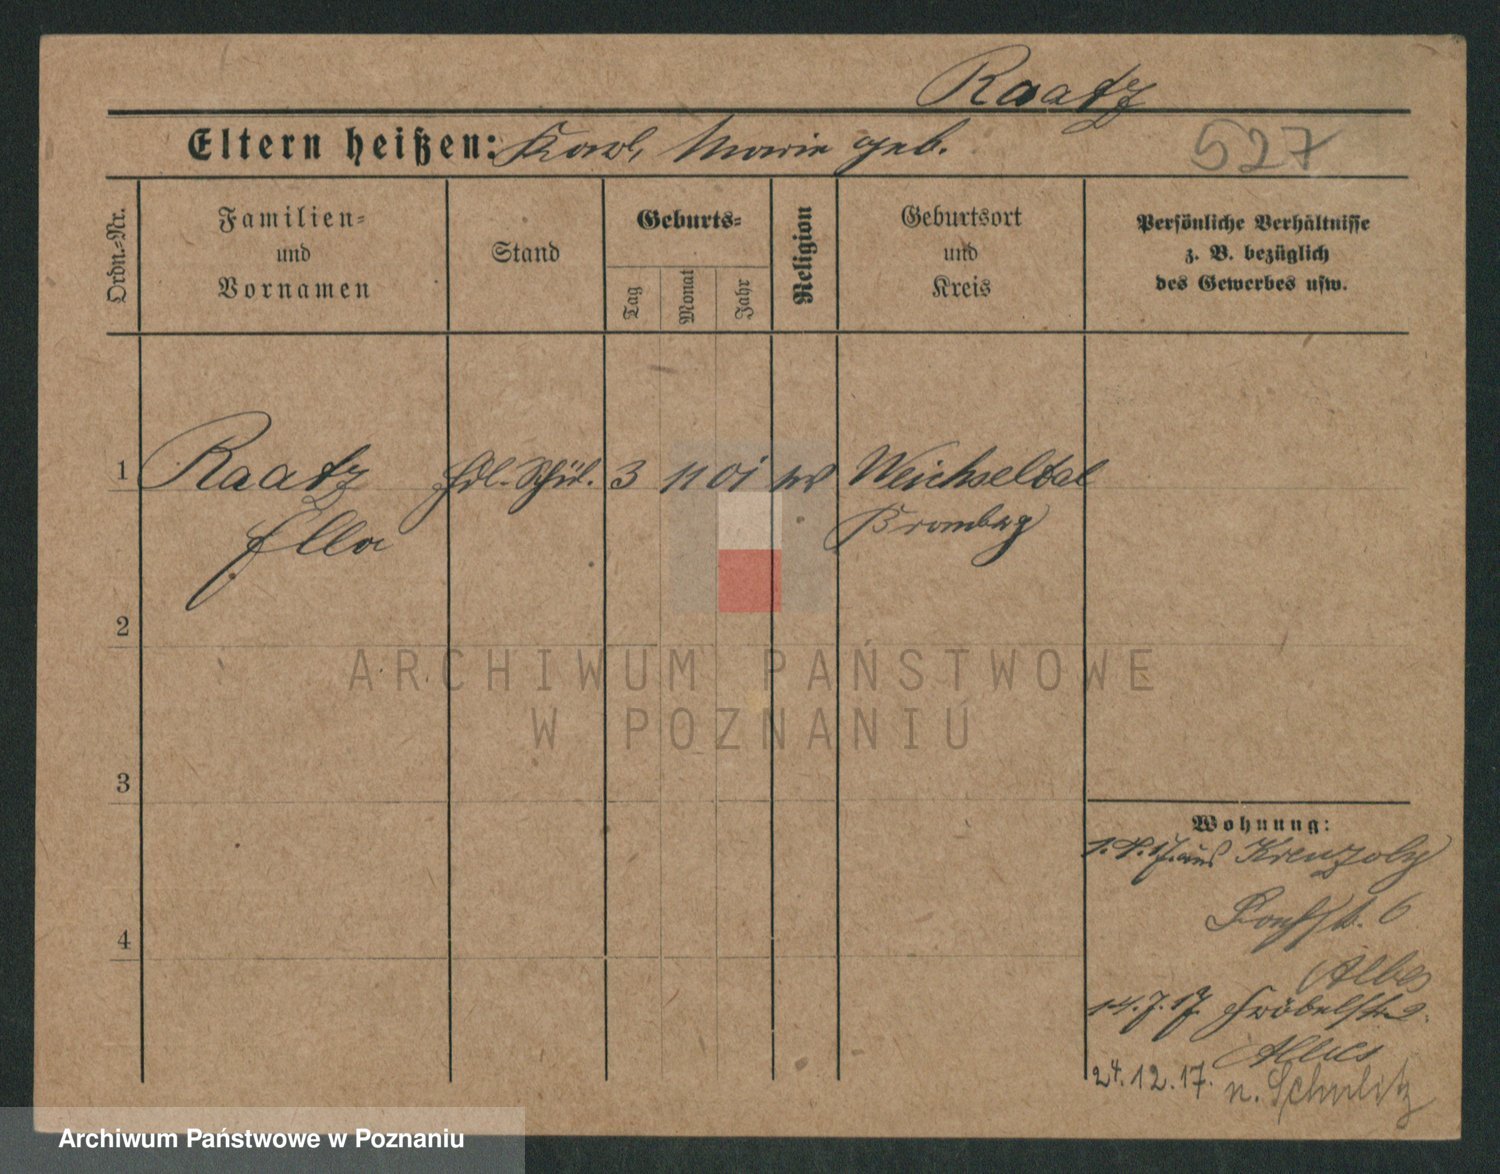 Raatz
Eltern heißen: Karl, Marie geb.
527
Ordn.-Nr.
Familien-
und
Vornamen
Stand
Geburts-
Tag
Monat
Jahr
Religion
Geburtsort
und
Kreis
Persönliche Verhältnisse
z. B. bezüglich
des Gewerbes usw.
1 Raatz Hdl. Schül. 3 11 01 Weichseltal
Ella Bromberg
2
ARCHIWUM PAŃSTWOWE
W POZNANIU
3
Wohnung:
1. 4. 17. aus
6
4
Albes
14. 7. 17. Fröbelstr. 2.
Albes
24. 12. 17. n. Schulitz
Archiwum Państwowe w Poznaniu